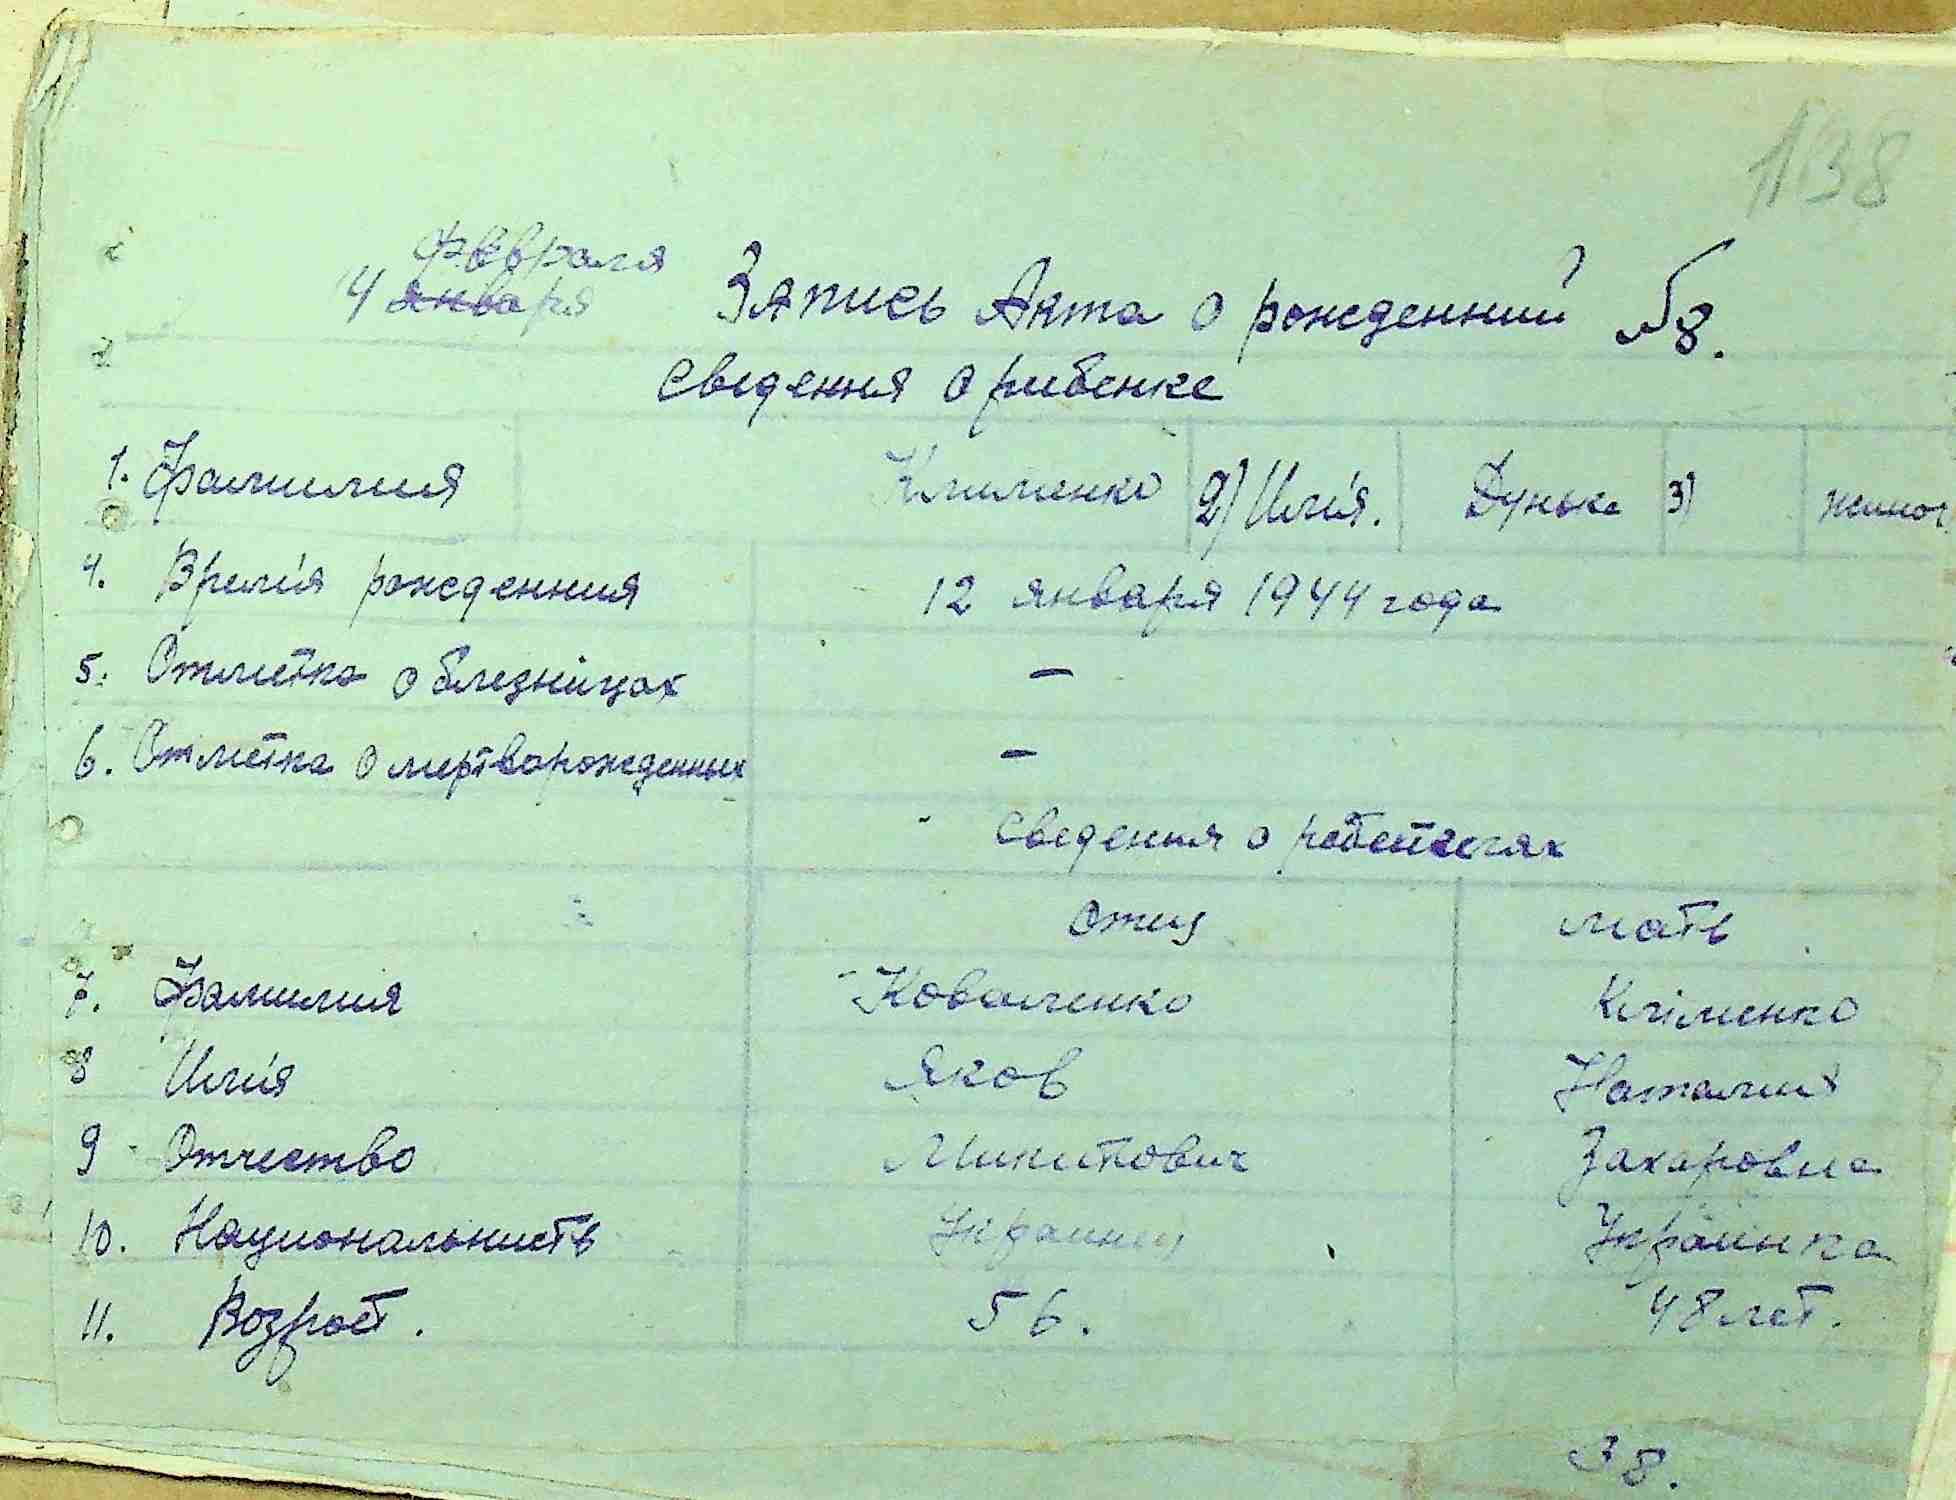 138
февраля
4 января Запись Акта о рожденний №8.
сведення о рибенке
1. Фамилия Клименко 2) Имія. Дунька 3)
4. Времія рожденния 12 января 1944 года
5. Отметка о блезницах –
6. Отметка о мертворожденных –
сведення о
отец мать
7. Фамилия Коваленко Кліменко
8 Имія Яков Наталия
9 Отчество Микитович Захаровна
10. Национальность Украинец Украинка
11. Возраст. 56. 48 лет.
38.